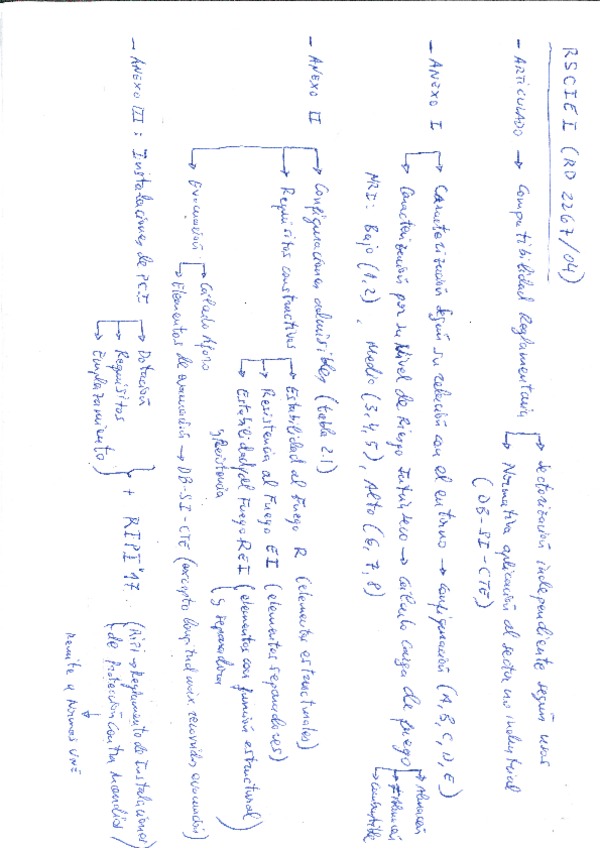 RSCIEI (RD 2267/04)
- ARTICULADO → Compatibilidad Reglamentaria
→ Sectorización independiente según usos
→ Normativa aplicación al sector no industrial
(DB-SI-CTE)
- ANEXO I
→ Caracterización según su relación con el entorno → configuración (A, B, C, D, E)
→ Caracterización por su Nivel de Riesgo Intrínseco → Cálculo carga de fuego
→ Almacén
→ ≠ Almacén
→ combustible
NRI: Bajo (1,2), Medio (3,4,5), Alto (6,7,8)
- ANEXO II
→ Configuraciones admisibles (tabla 2.1)
→ Requisitos constructivos
→ Estabilidad al Fuego R (elementos estructurales)
→ Resistencia al Fuego EI (elementos separadores)
→ Estabilidad al Fuego REI (elementos con función estructural)
y Resistencia
y separadora
→ Evacuación
→ Cálculo Aforo
→ Elementos de evacuación → DB-SI-CTE (excepto longitud máx. recorridos evacuación)
- ANEXO III: Instalaciones de PCI
→ Dotación
→ Requisitos
→ Emplazamiento
+ RIPCI'17.
(RIPCI → Reglamento de Instalaciones
de Protección contra Incendios)
Remite a Normas UNE